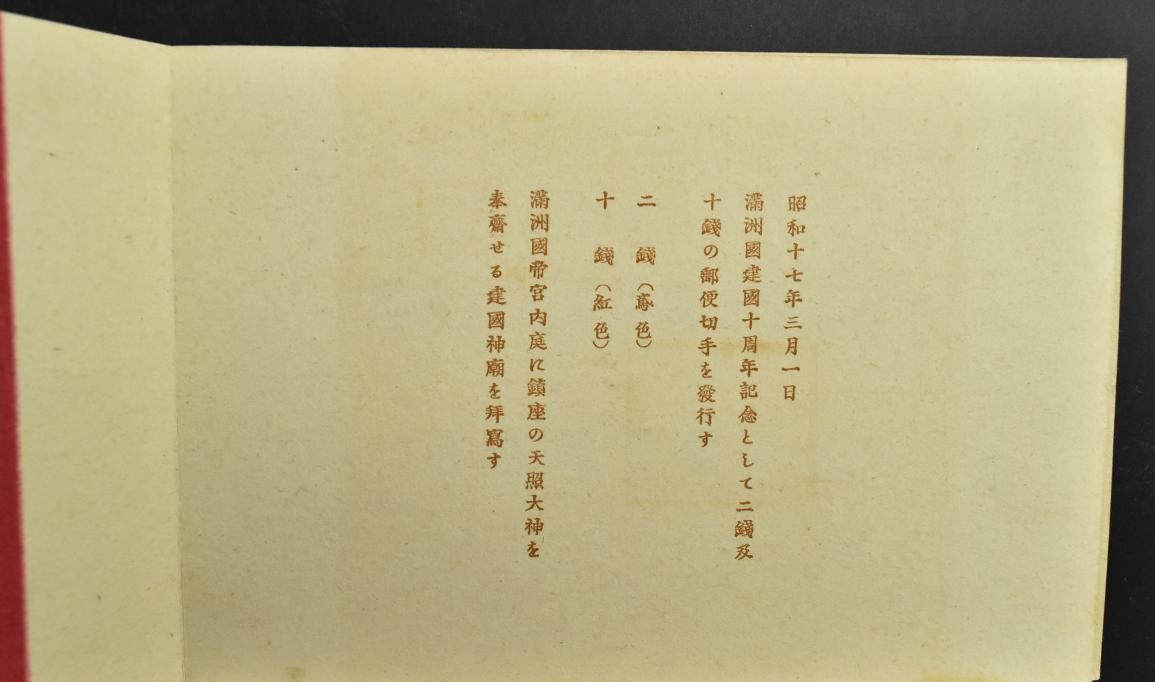 昭和十七年三月一日
滿洲國建國十周年記念として二錢及
十錢の郵便切手を發行す
二錢（鳶色）
十錢（紅色）
滿洲國帝宮内庭に鎭座の天照大神を
奉齋せる建國神廟を拜寫す